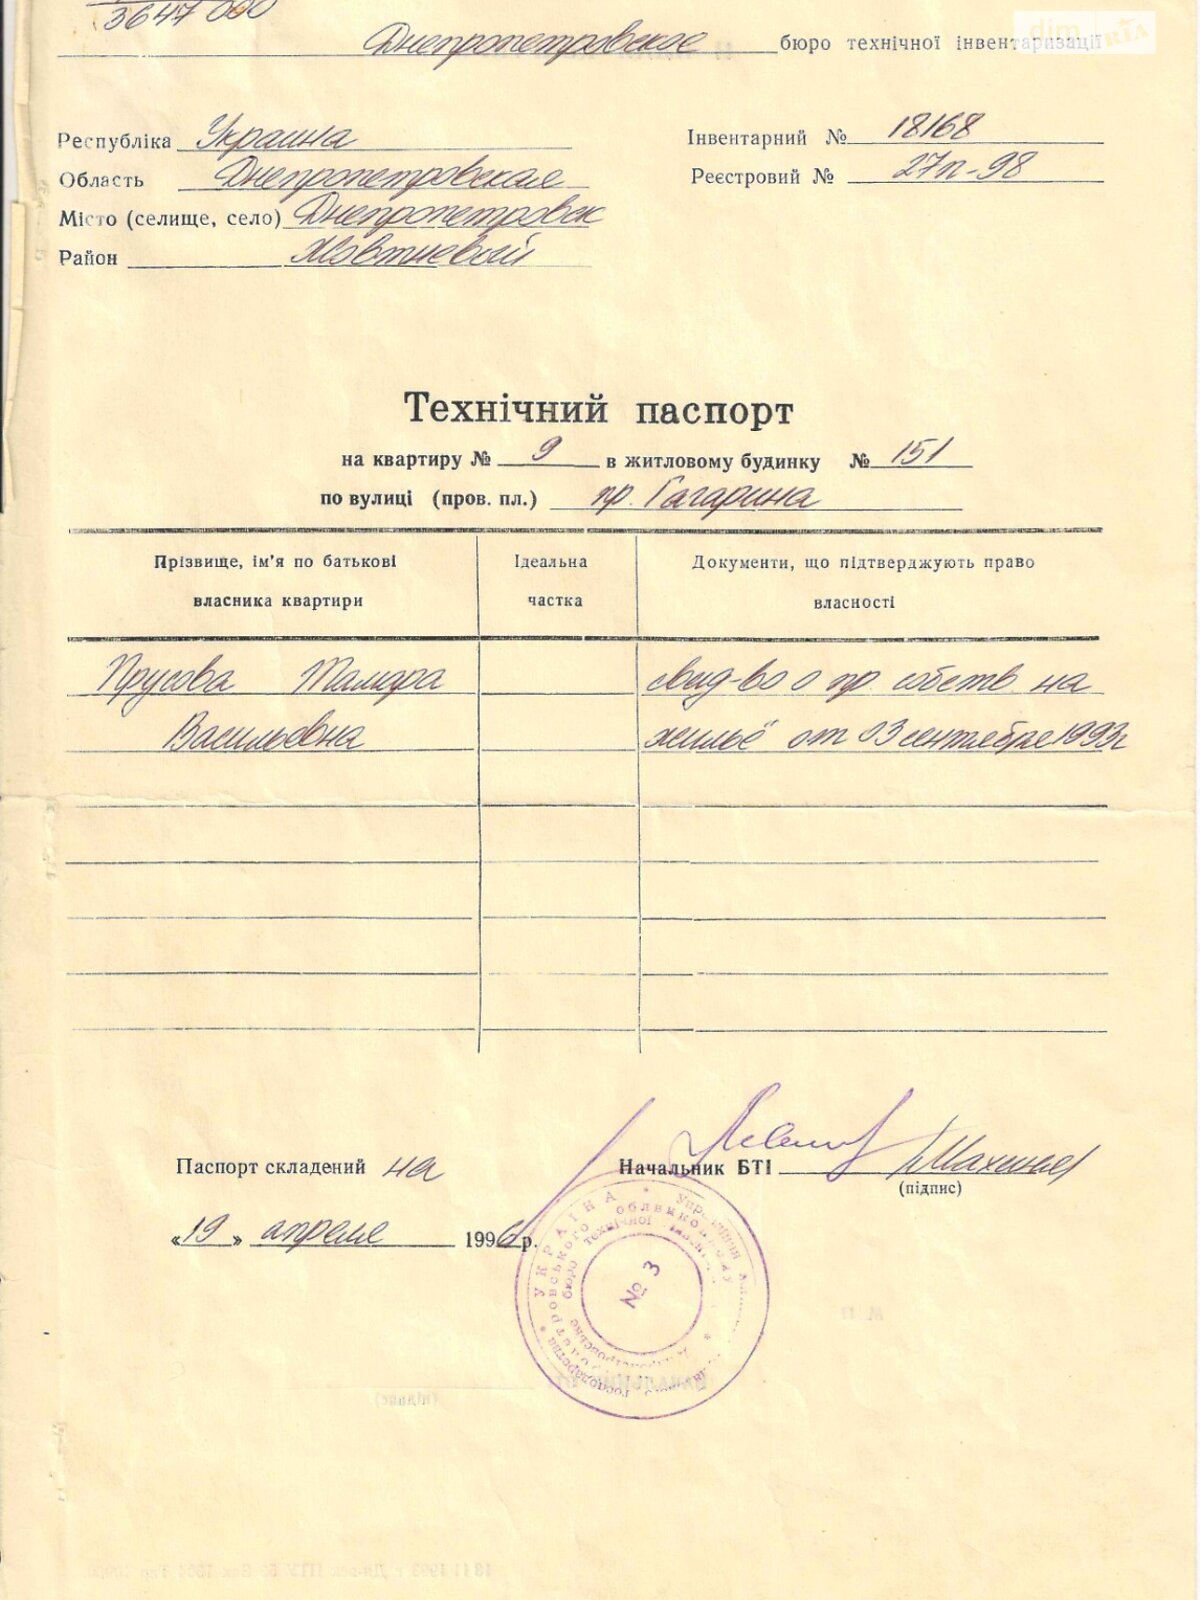 3647 000
dim RIA
Днепропетровское бюро технічної інвентаризації
Республіка Украина
Інвентарний № 18168
Область Днепропетровская
Реєстровий № 27п-98
Місто (селище, село) Днепропетровск
Район Жовтневый
Технічний паспорт
на квартиру № 9 в житловому будинку № 151
по вулиці (пров. пл.) пр. Гагарина
Прізвище, ім'я по батькові
власника квартири
Ідеальна
частка
Документи, що підтверджують право
власності
Прусова Тамара
Васильевна
свид-во о пр. собств на
жильё от 03 сентября 1993г
Паспорт складений на
Начальник БТІ
(підпис)
«19» апреля 1996 р.
УКРАЇНА
№ 3